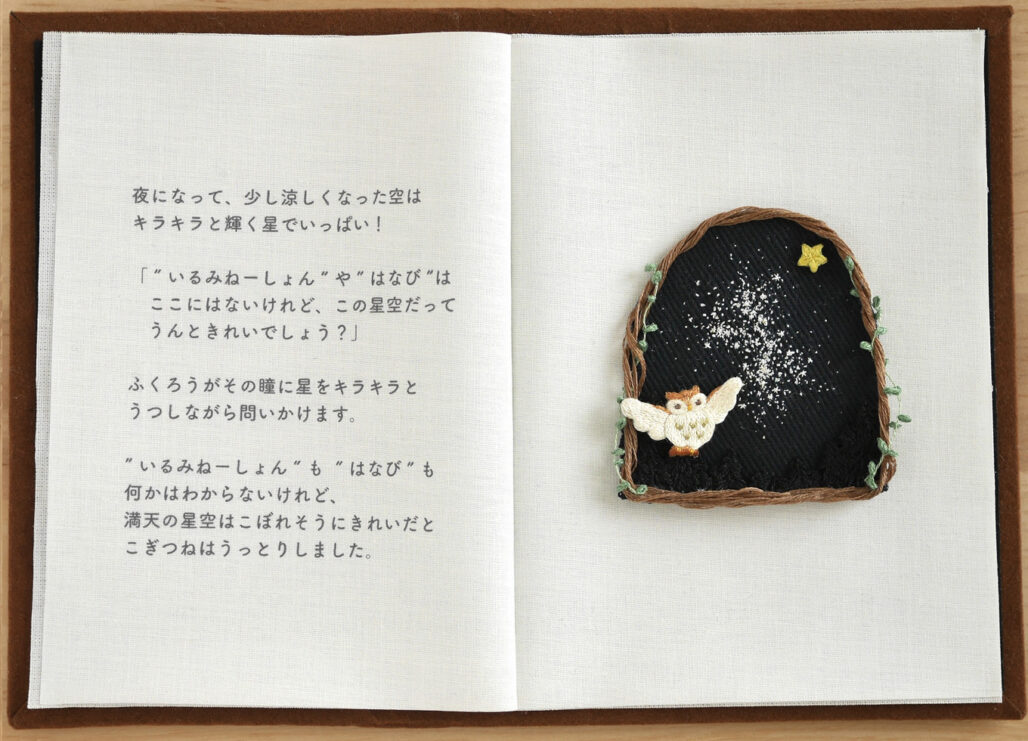 夜になって、少し涼しくなった空は
キラキラと輝く星でいっぱい！
「“いるみねーしょん”や“はなび”は
ここにはないけれど、この星空だって
うんときれいでしょう？」
ふくろうがその瞳に星をキラキラと
うつしながら問いかけます。
“いるみねーしょん”も“はなび”も
何かはわからないけれど、
満天の星空はこぼれそうにきれいだと
こぎつねはうっとりしました。